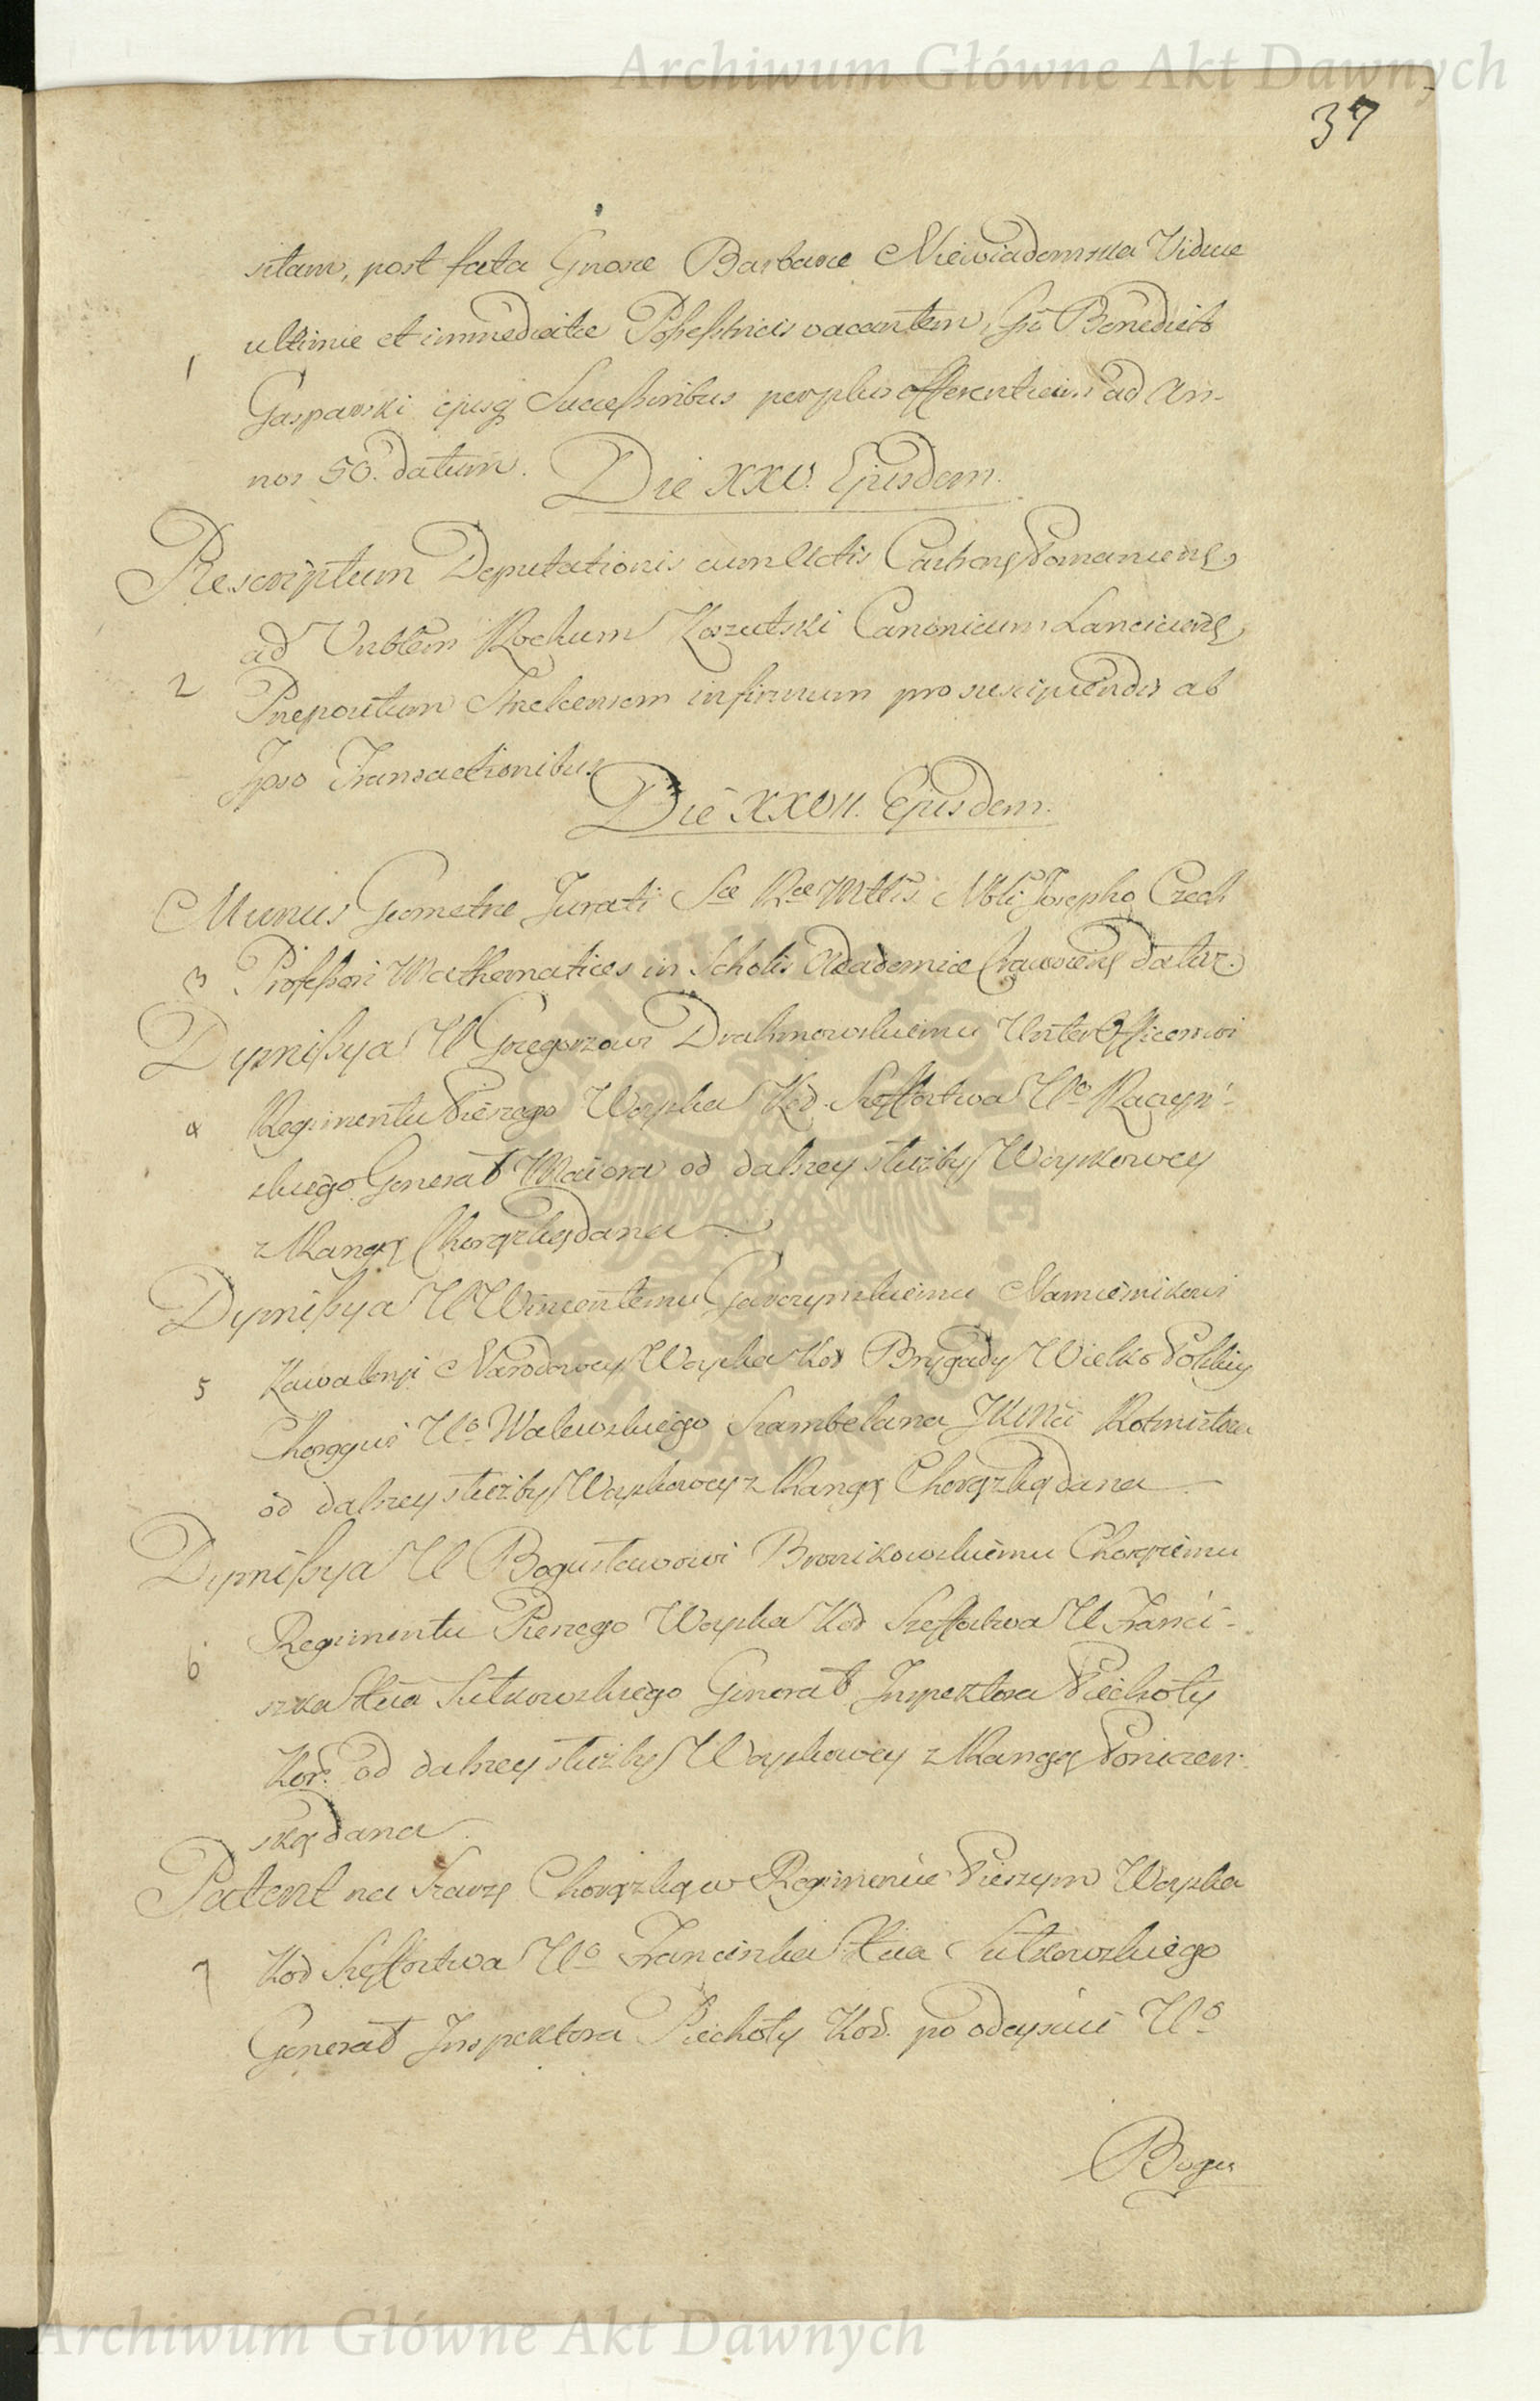 Archiwum Główne Akt Dawnych
37
sitam, post fata Gnosæ Barbaræ Niewiadomska Viduæ
ultimæ et immediatæ Poſseſstricis vacantem, Gō Benedicto
1
Gasparski ejusq Succeſsoribus per plus offerentiam ad An-
nos 50. datum.
Die XXV. Ejusdem.
Rescriptum Deputationis cum Actis Castrens Posnaniens,
ad Vnblem Rochum Koszutski Canonicum Lanciciens,
2
Præpositum Strelcensem infirmum pro suscipiendis ab
Ipso Transactionibus
Die XXVII. Ejusdem.
Munus Geometræ Jurati Sæ Ræ Mttis Nbli Josepho Czech
3
Profeſsori Mathematices in Scholis Academiæ Cracoviens datur.
Dymiſsya U Grzegorzowi Drahnowskiemu UnterOfficerowi
4
Regimentu Pieszego Woyska Kor. Szeffostwa Uo Raczyń-
skiego Generał Maiora od dalszey służby Woyskowey
z Rangą Chorążską dana
Dymiſsya U Wincentemu Garczyńskiemu Namiesnikowi
5
Kawaleryi Narodowey Woyska Kor Brygady Wielko Polskiey
Chorągwi Uo Walewskiego Szambelana JKMci Rotmistrza
od dalszey służby Woyskowey z Rangą Chorążską dana
Dymiſsya U Bogusławowi Bronikowskiemu Chorążemu
6
Regimentu Pieszego Woyska Kor Szeffostwa U Franci-
szka Xcia Sułkowskiego Generał Inspektora Piechoty
Kor. od dalszey służby Woyskowey z Rangą Poruczni-
ską dana
Patent na Szarżę Chorążską w Regimencie Pieszym Woyska
7
Kor Szeffostwa Uo Franciszka Xcia Sułkowskiego
Generał Inspektora Piechoty Kor. po odeysciu Uo
Bogus
Archiwum Główne Akt Dawnych